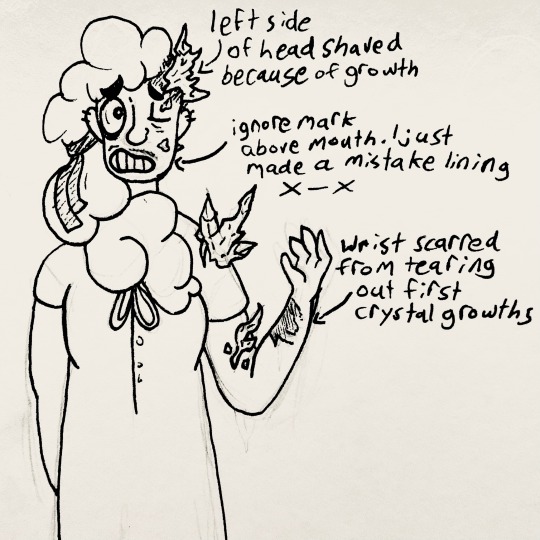 left side
of head shaved
because of growth
ignore mark
above mouth. I just
made a mistake lining
x-x
Wrist scarred
from tearing
out first
crystal growths